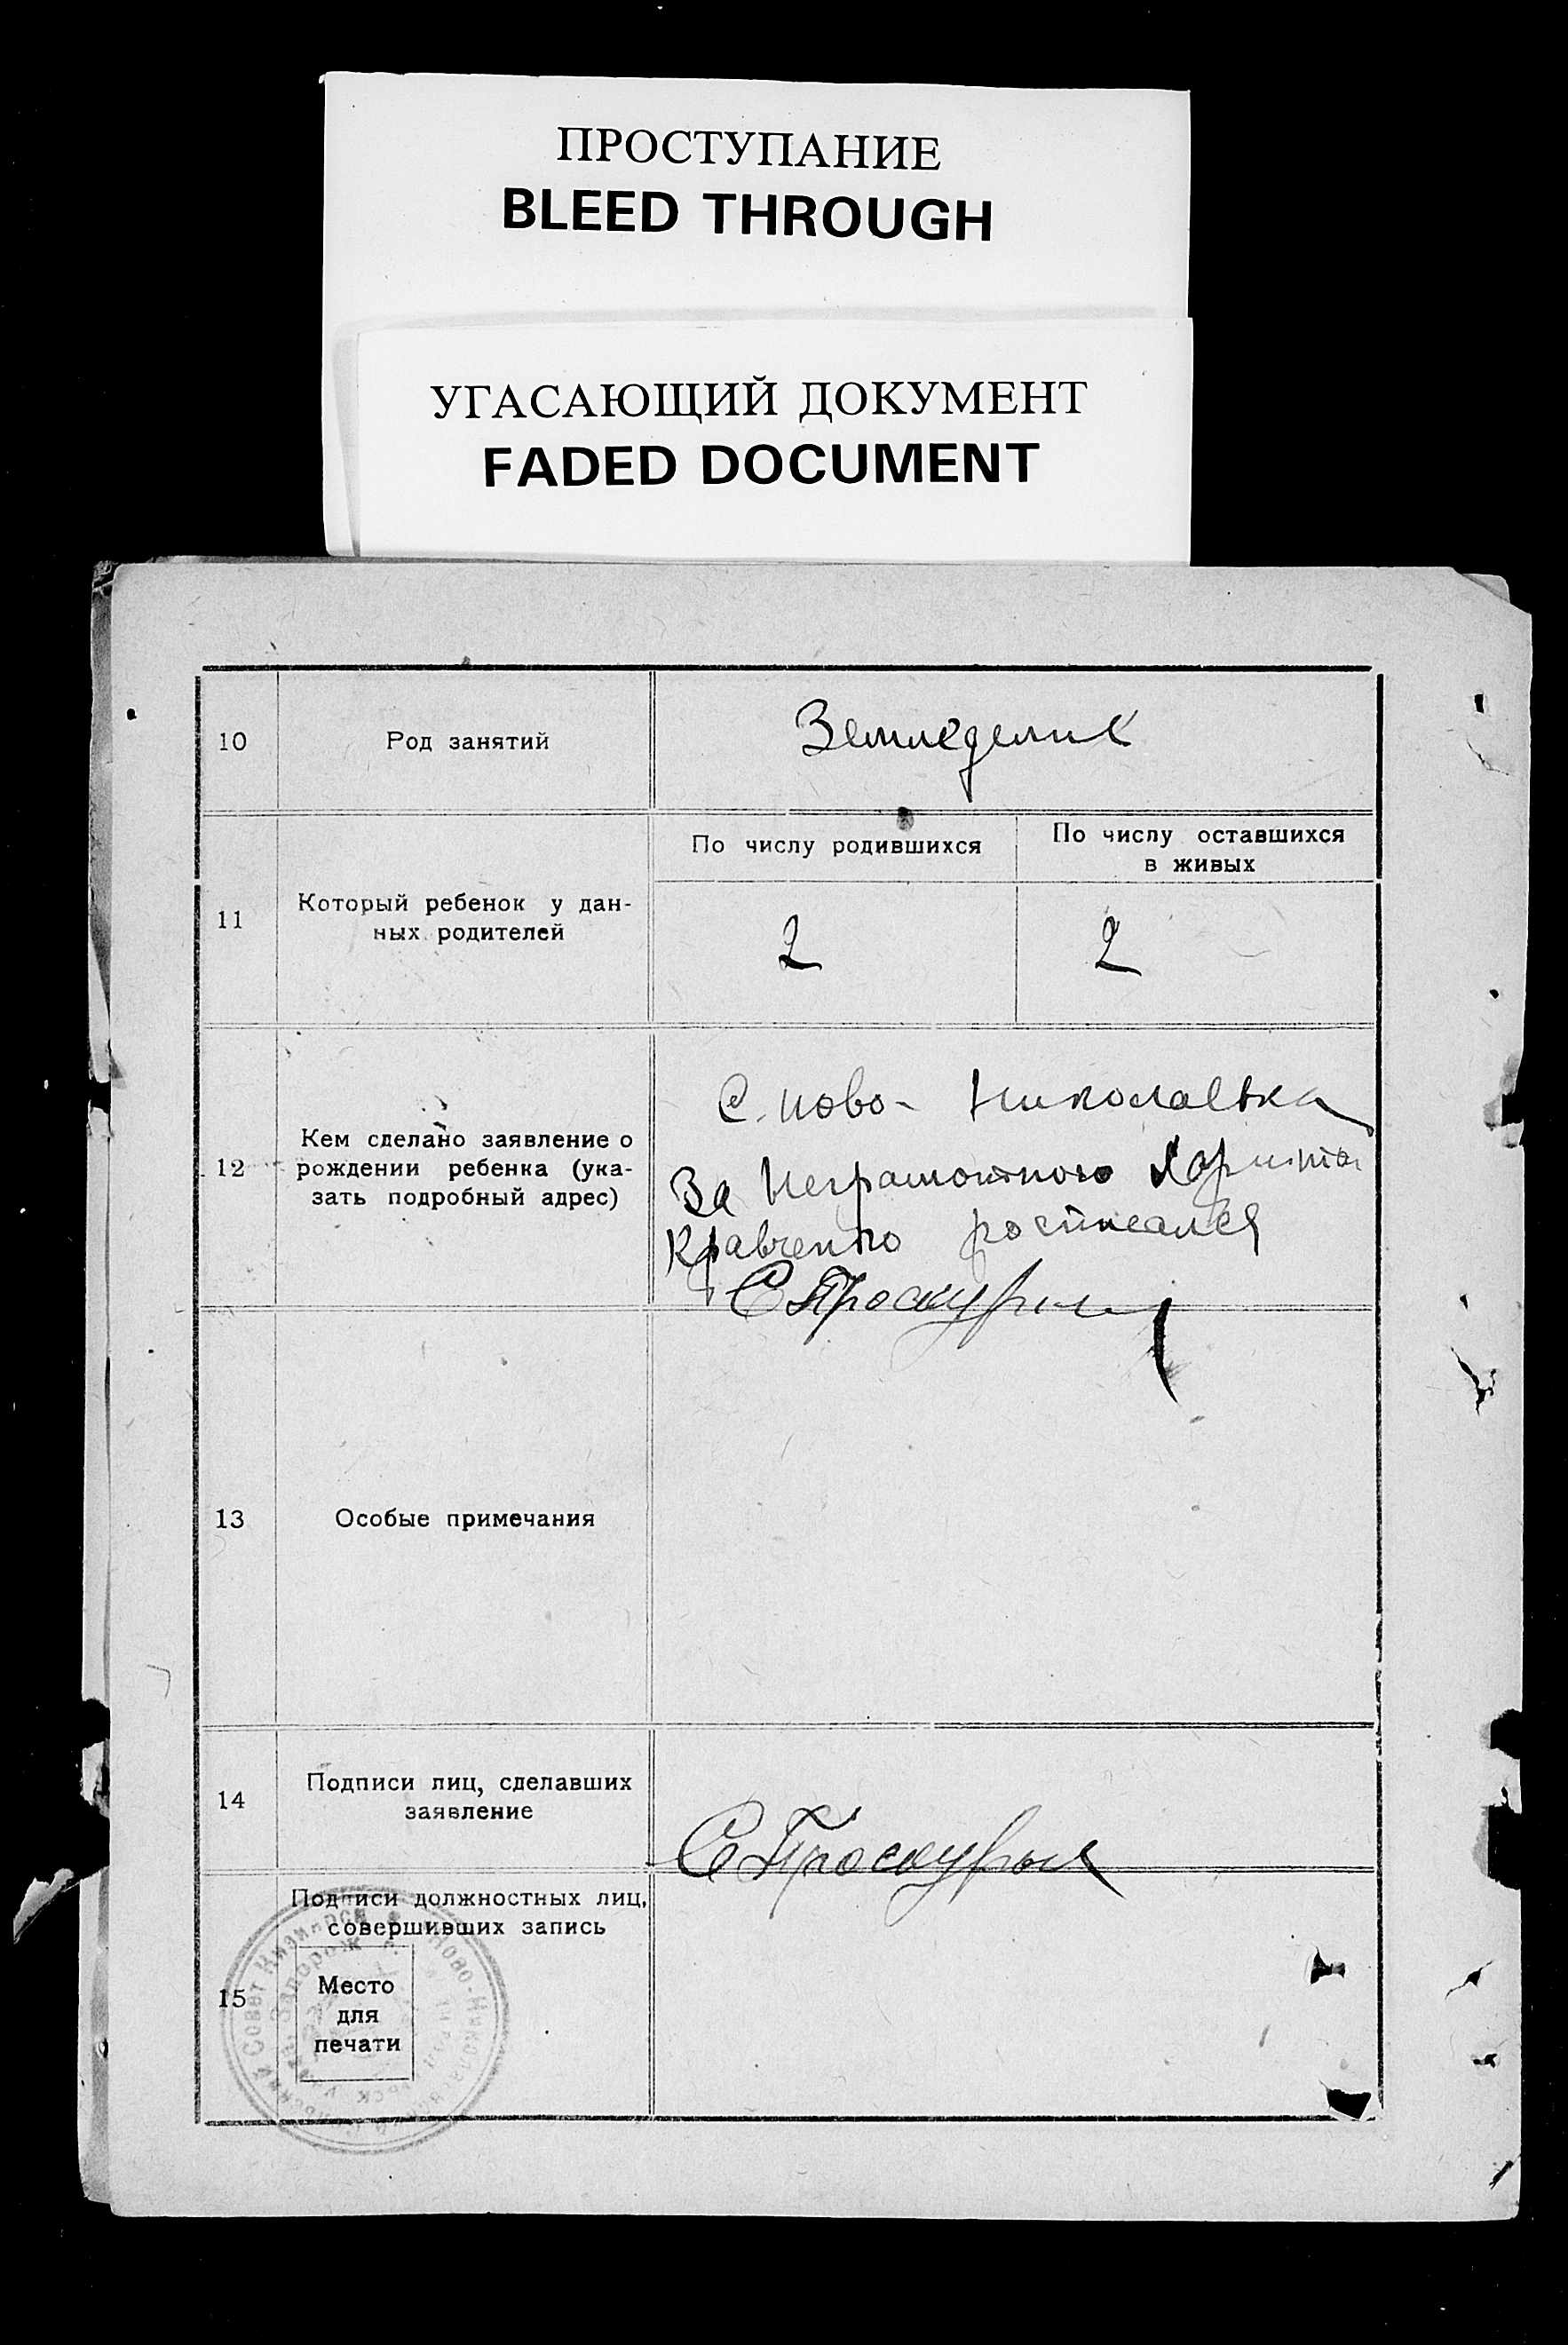 ПРОСТУПАНИЕ
BLEED THROUGH
УГАСАЮЩИЙ ДОКУМЕНТ
FADED DOCUMENT
10 Род занятий Земледелие
11 Который ребенок у дан-
ных родителей
По числу родившихся
2
По числу оставшихся
в живых
2
12 Кем сделано заявление о
рождении ребенка (ука-
зать подробный адрес)
С. Ново- Николаевка
За Неграмотного
Кравченко росписался
С Проскурин
13 Особые примечания
14 Подписи лиц, сделавших
заявление
С Проскурин
15 Подписи должностных лиц,
совершивших запись
Место
для
печати